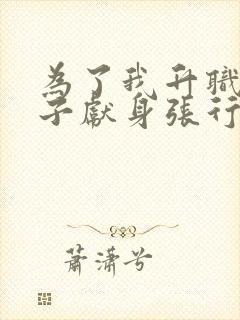 為了我升職
子獻身張行
蕭瀟兮